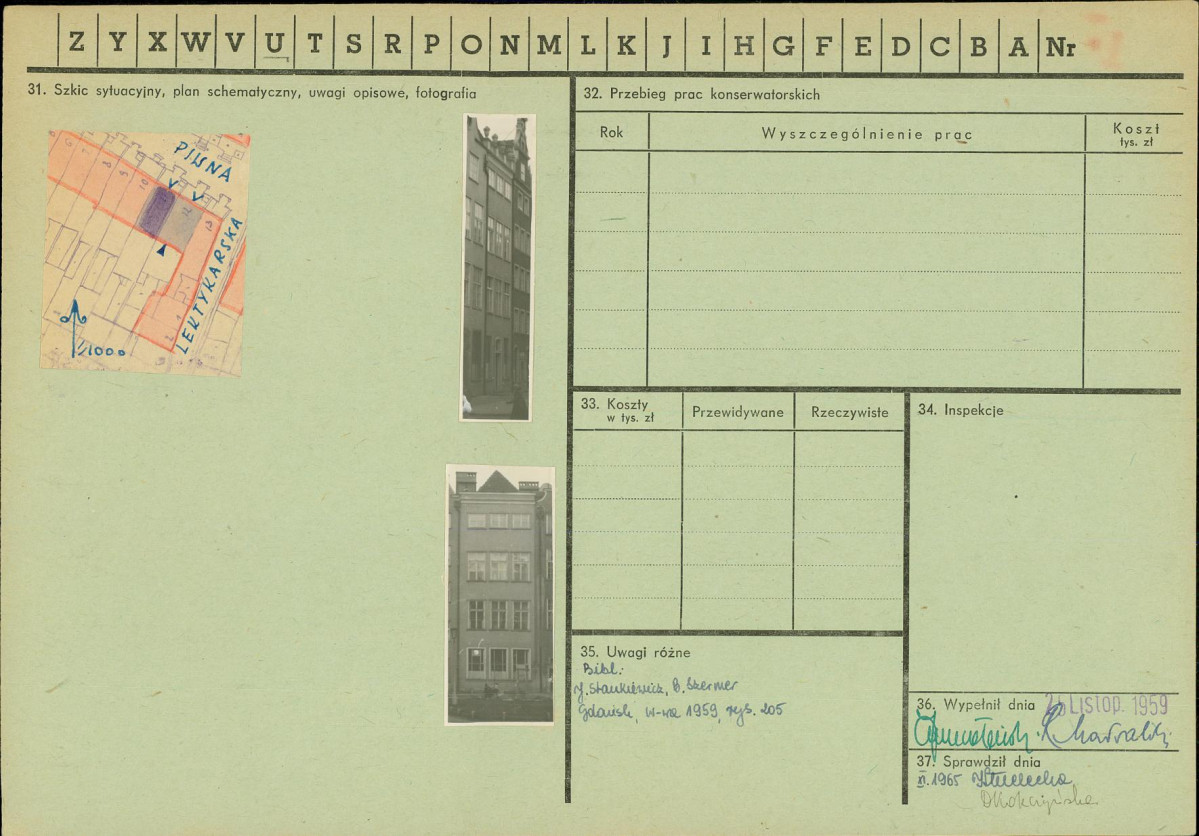 Z Y X W V U T S R P O N M L K J I H G F E D C B A Nr
31. Szkic sytuacyjny, plan schematyczny, uwagi opisowe, fotografia
PIWNA
6 7 8 9 10 12 13
LEKTYKARSKA
2 1
1:1000
32. Przebieg prac konserwatorskich
Rok
Wyszczególnienie prac
Koszt
tys. zł
33. Koszty
w tys. zł
Przewidywane
Rzeczywiste
34. Inspekcje
35. Uwagi różne
Bibl.:
J. Stankiewicz, B. Szermer
Gdańsk, W-wa 1959, rys. 205
36. Wypełnił dnia
LISTOP. 1959
37. Sprawdził dnia
XI. 1965